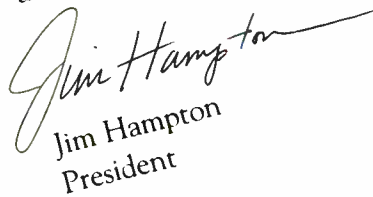 Jim Hampton
Jim Hampton
President